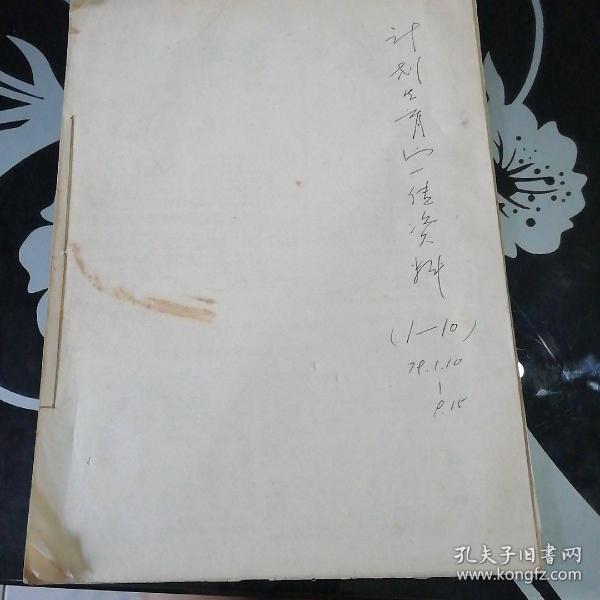 计划生育宣传资料
(1—10)
79.1.10
|
9.15
孔夫子旧书网
www.kongfz.com